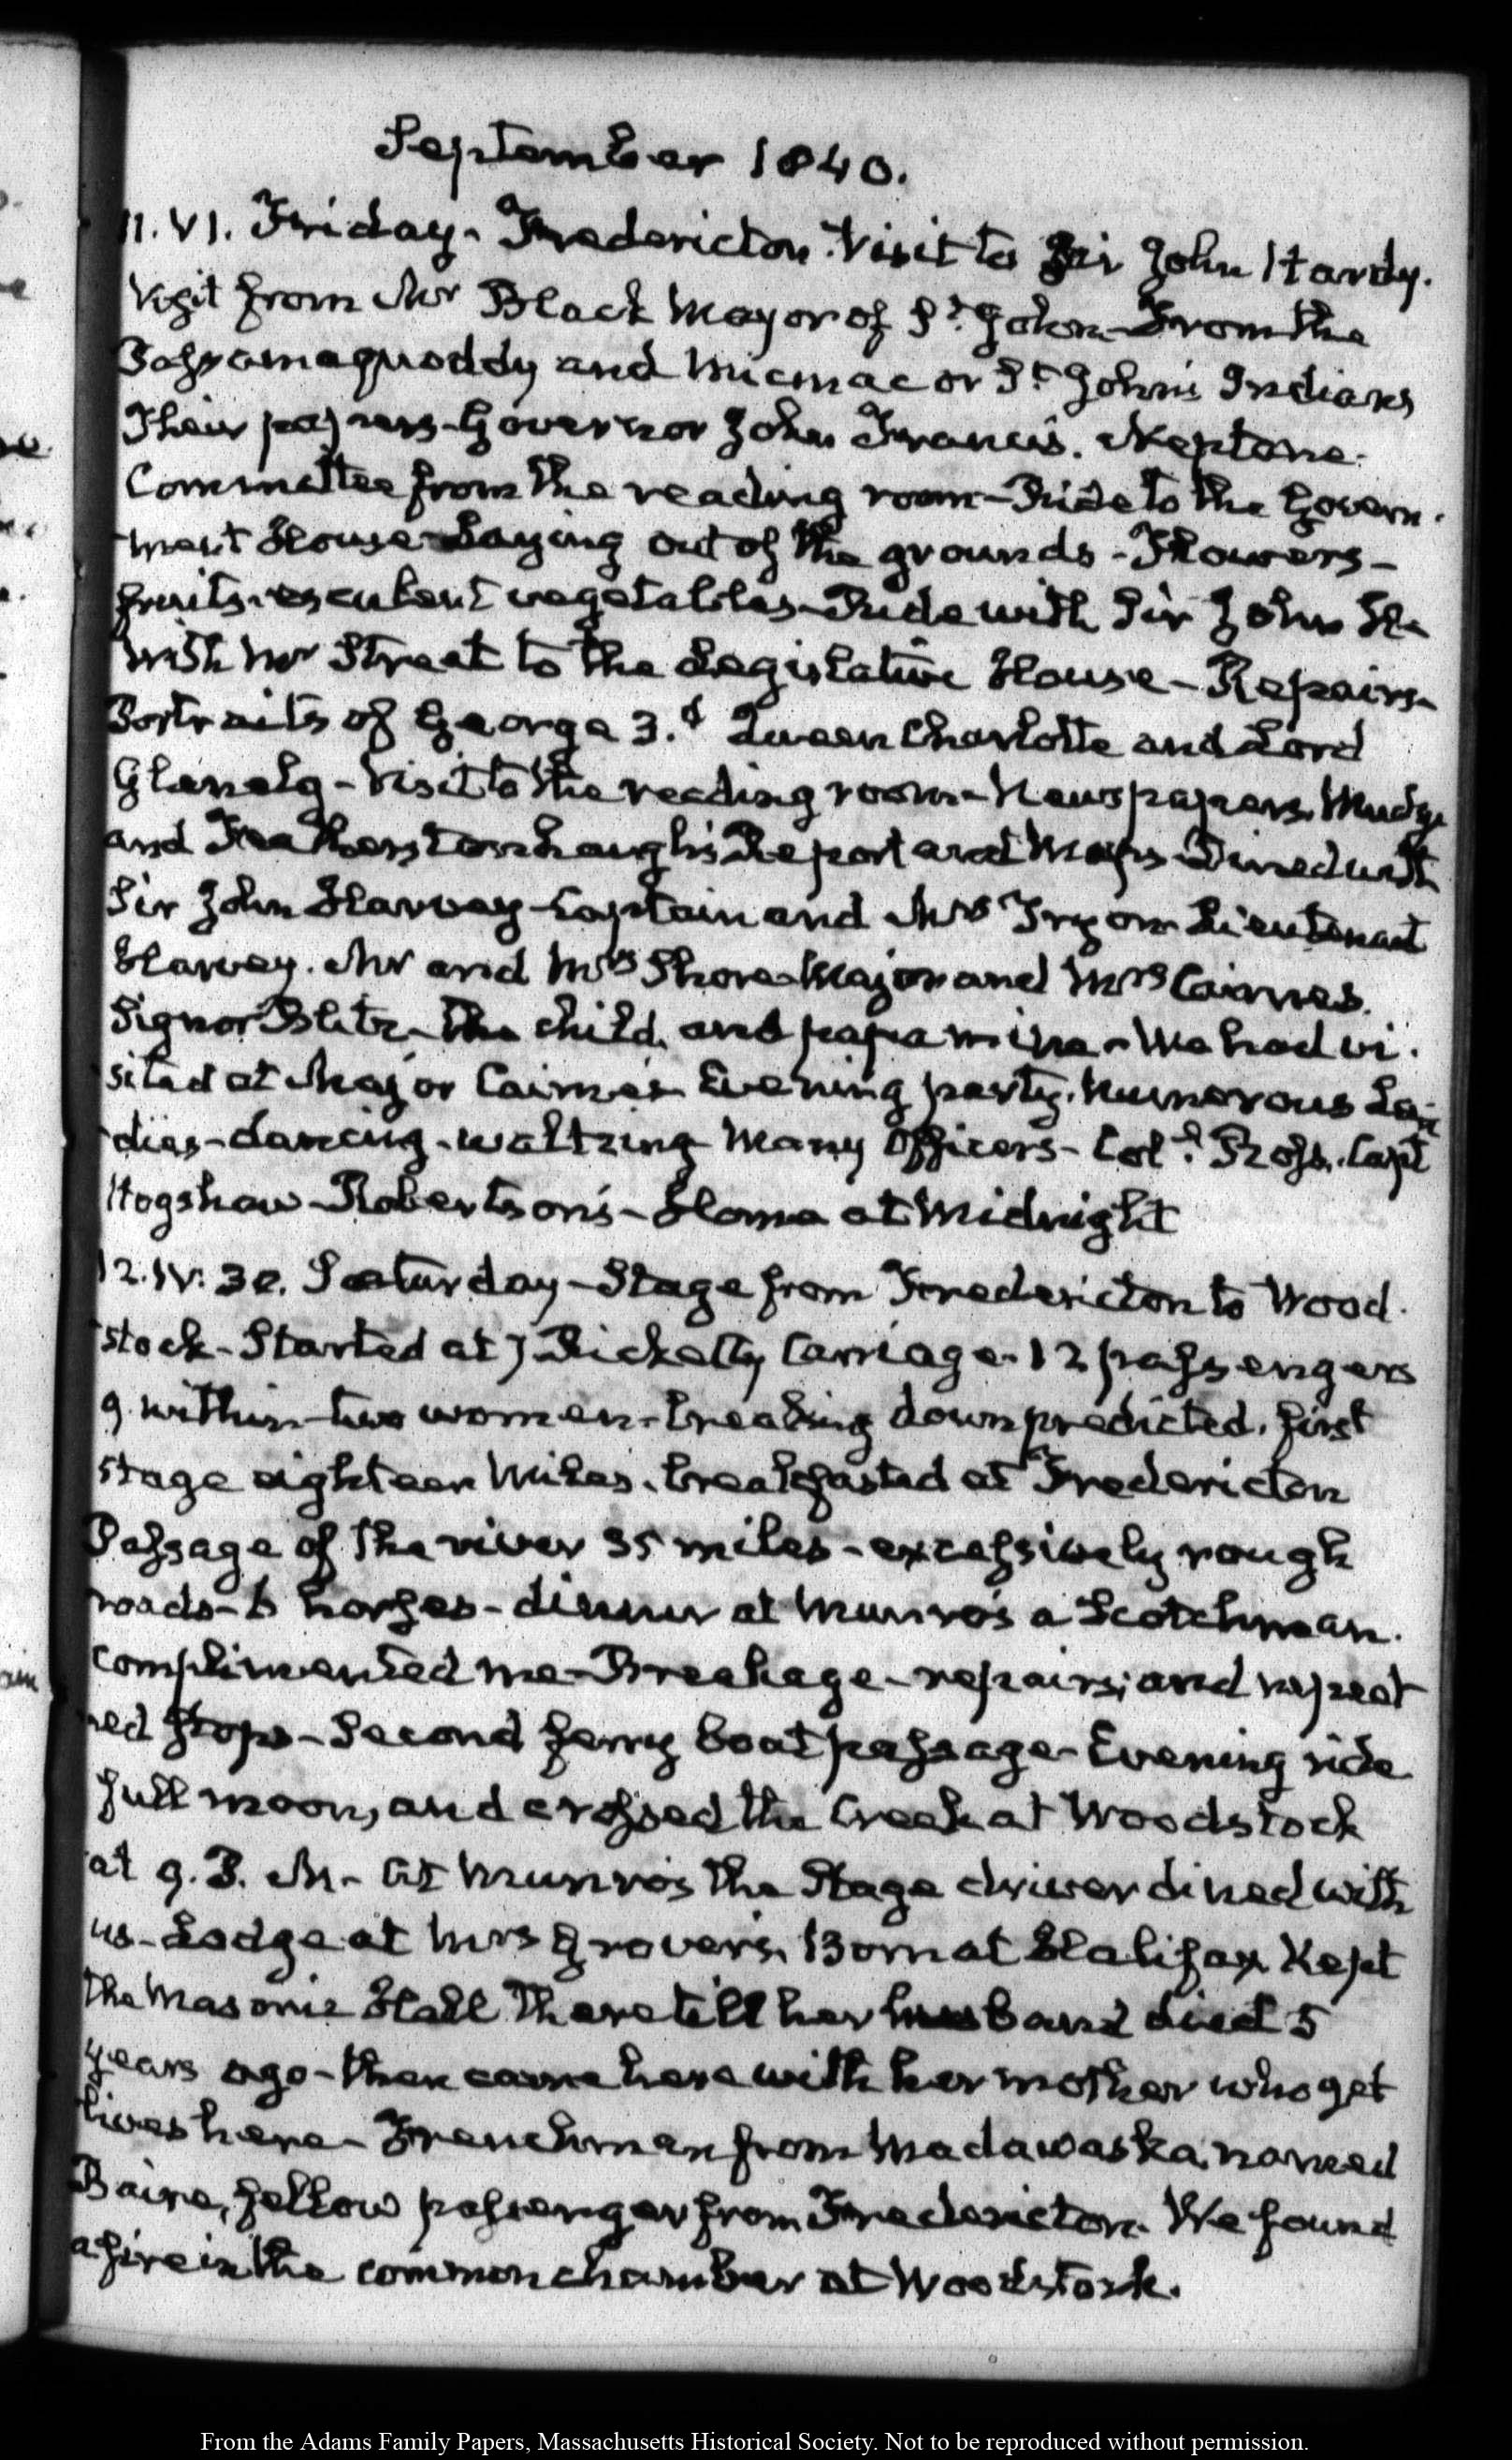 September 1840.
11. VI. Friday. Fredericton. Visit to Sir John Hardy.
Visit from Mr Black Mayor of St. John—From the
Passamaquoddy and Micmac or St Johns Indians
Their papers—Governor John Francis. Neptone.
Committee from the reading room—Ride to the Govern.
ment House—Laying out of the grounds—Flowers—
fruits—esculent vegetables—Ride with Sir John H.
with Mr Street to the Legislative House—Repairs—
Portraits of George 3.d Queen Charlotte and Lord
Glenelg—Visit to the reading room—Newspapers. Mudge
and Featherstonhaugh's Report and Maps—Dined with
Sir John Harvey—Captain and Mrs Tryon Lieutenant
Harvey. Mr and Mrs Shore—Major and Mrs Cairnes.
Signor Blitz—The child, and papa mine—We had vi.
sited at Major Cairnes's Evening party. Numerous La-
dies—dancing—waltzing Many Officers—Col. Ross. Capt
Hogshaw—Robertson's—Home at Midnight
12. IV. 30. Saturday—Stage from Fredericton to Wood.
stock—Started at 7 Ricketty Carriage—12 passengers
9 within—two women—breaking down predicted. first
stage eighteen Miles. breakfasted at Fredericton
Passage of the river 35 miles—excessively rough
roads—6 horses—dinner at Munro's a Scotchman.
complimented me—Breakage—repairs; and repeat
ed stops—Second ferry boat passage—Evening ride
full moon, and crossed the Creek at Woodstock
at 9. P. M.—At Munro's the Stage driver dined with
us—Lodge at Mrs Grover's. Born at Halifax Kept
the Masonic Hall there till her husband died 5
years ago—then came here with her mother who yet
lives here—Frenchman from Madawaska, named
fellow passenger from Fredericton. We found
a fire in the common chamber at Woodstock.
From the Adams Family Papers, Massachusetts Historical Society. Not to be reproduced without permission.